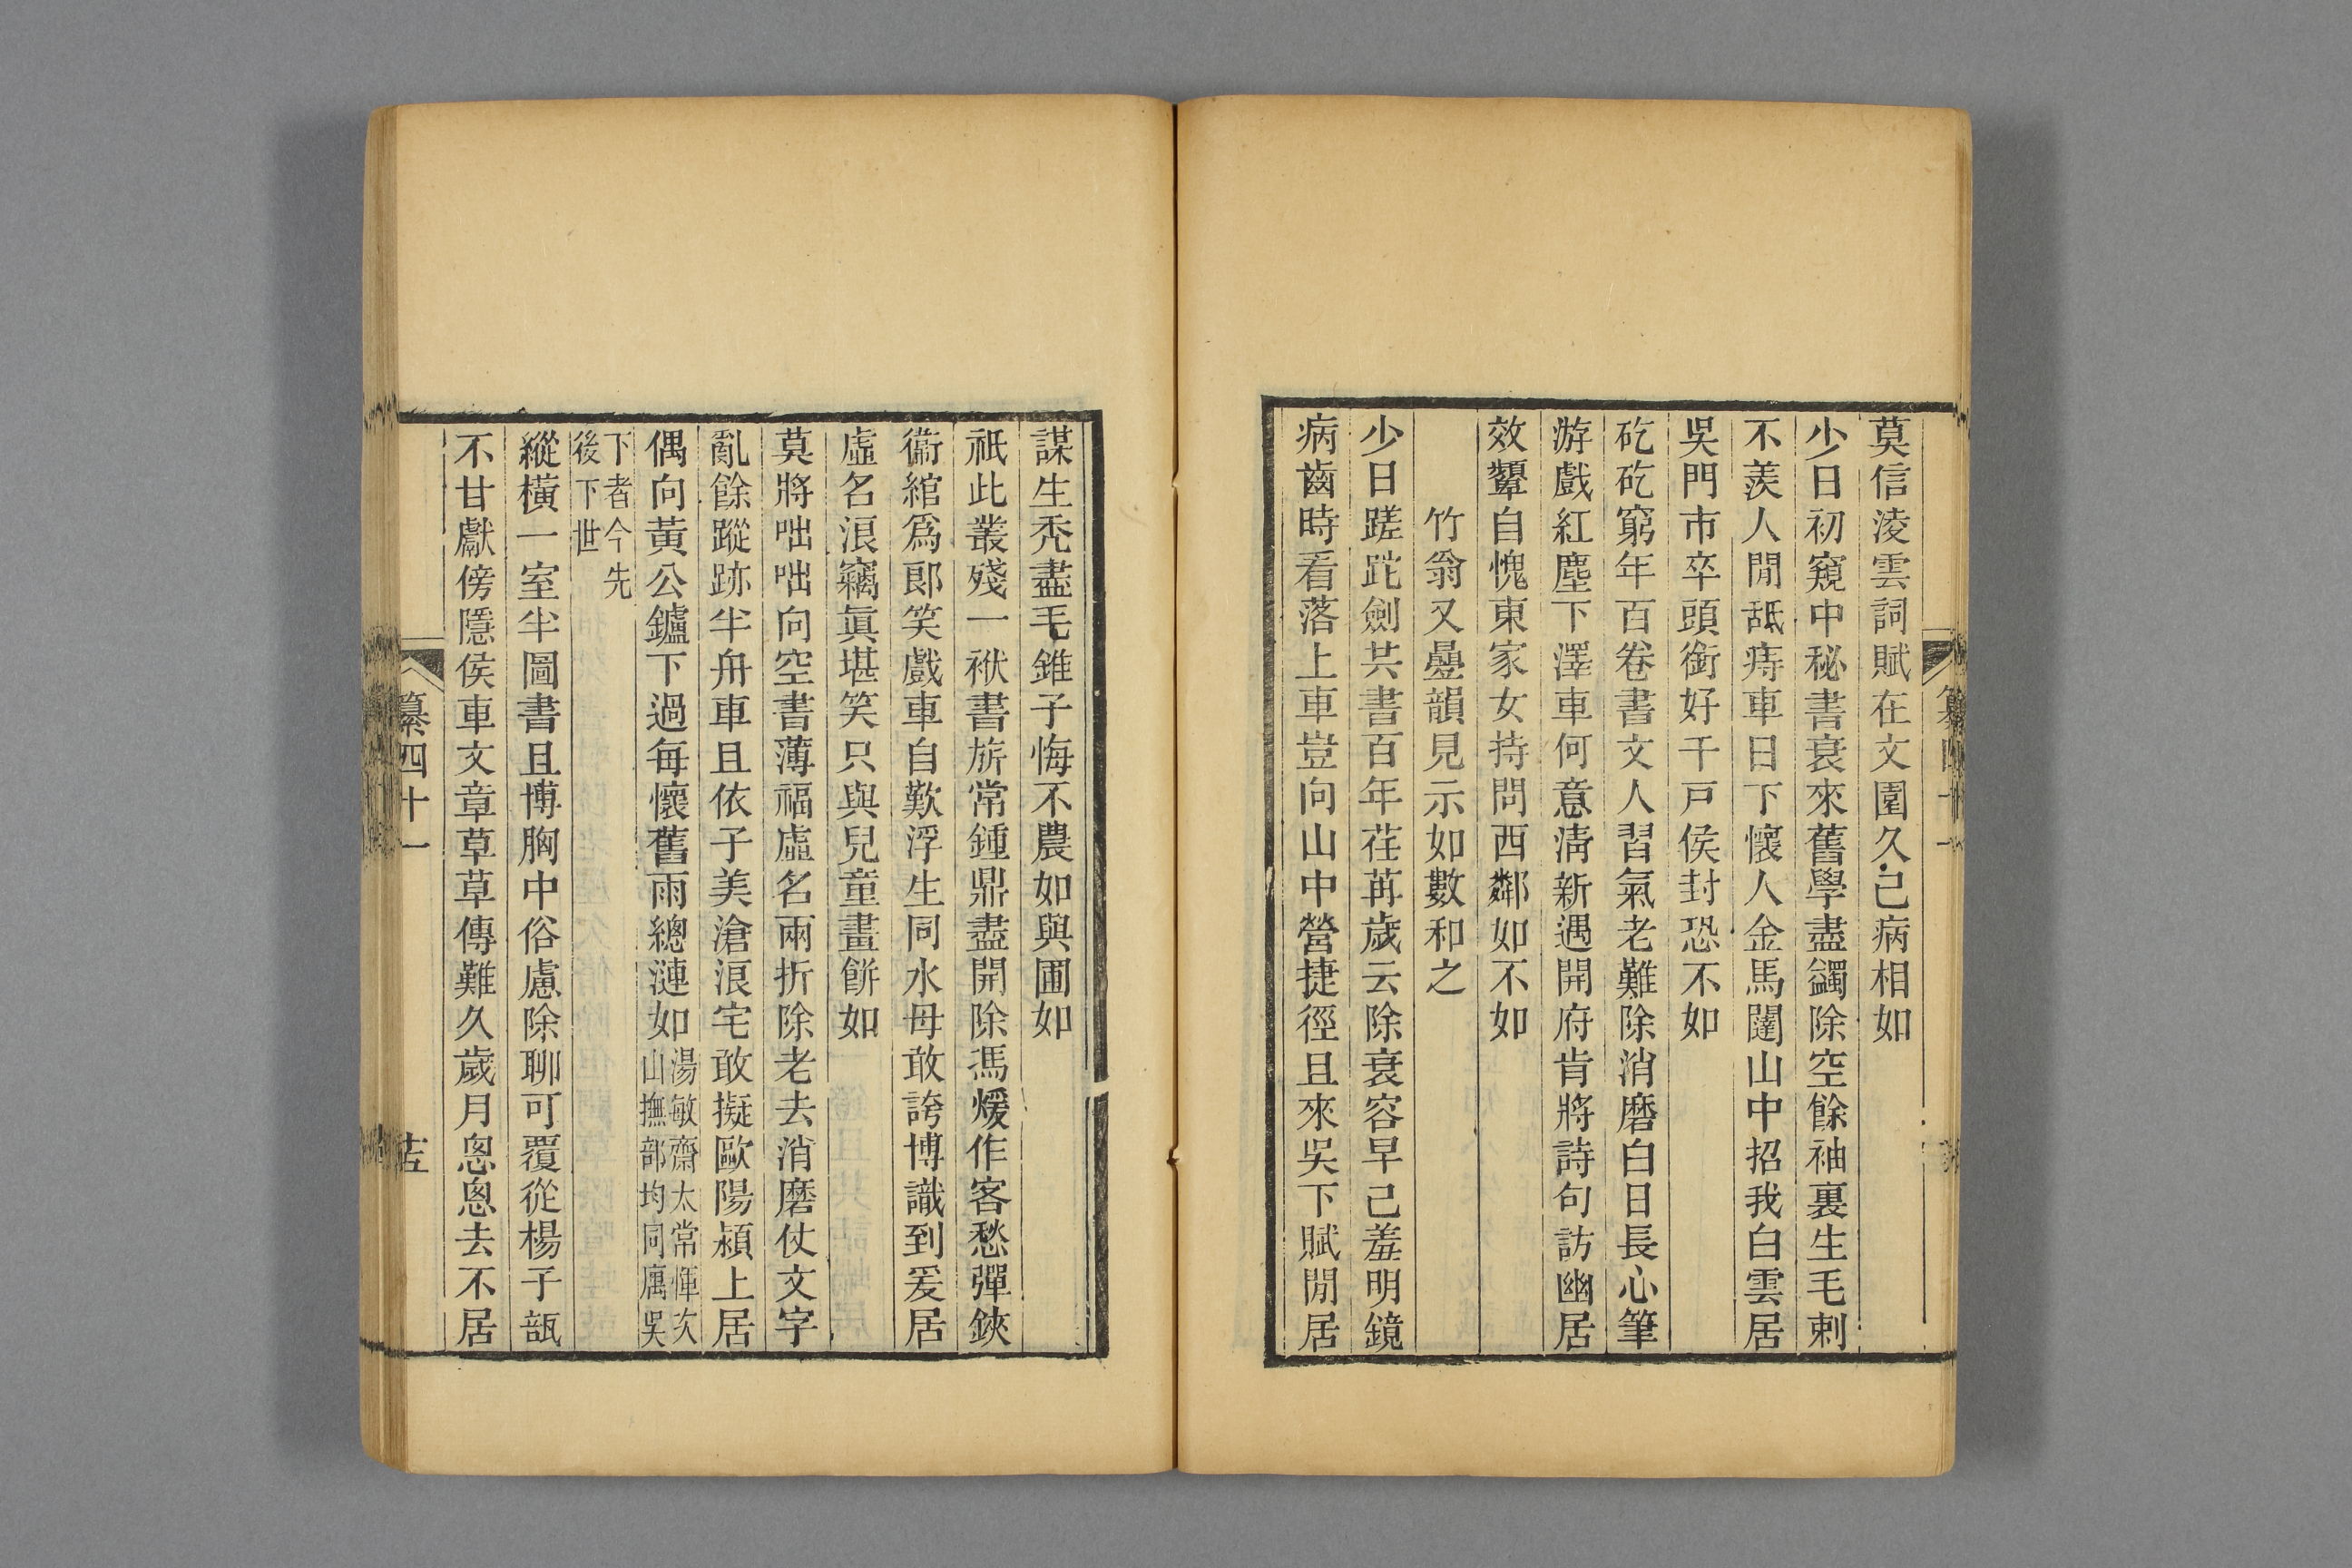 莫信淩雲詞賦在文園久已病相如
少日初窺中秘書衰來舊學盡蠲除空餘袖裏生毛刺
不羨人閒舐痔車日下懷人金馬闥山中招我白雲居
吳門市卒頭銜好千戸侯封恐不如
矻矻窮年百卷書文人習氣老難除消磨白日長心筆
游戲紅塵下澤車何意淸新遇開府肯將詩句訪幽居
效顰自愧東家女持問西鄰如不如
竹翁又曡韻見示如數和之
少日蹉跎劍共書百年荏苒歲云除衰容早已羞明鏡
病齒時看落上車豈向山中營捷徑且來吳下賦閒居
纂四十一
謀生禿盡毛錐子悔不農如與圃如
祇此叢殘一祑書旂常鍾鼎盡開除馮煖作客愁彈鋏
衞綰爲郎笑戲車自歎浮生同水母敢誇博識到爰居
虛名浪竊眞堪笑只與兒童畫餠如
莫將咄咄向空書薄福虛名兩折除老去消磨仗文字
亂餘蹤跡半舟車且依子美滄浪宅敢擬歐陽潁上居
偶向黃公鑪下過每懷舊雨總漣如湯敏齋太常惲次
山撫部均同寓吳
下者今先
後下世
縱橫一室半圖書且博胸中俗慮除聊可覆從楊子瓿
不甘獻傍隱侯車文章草草傳難久歲月悤悤去不居
纂四十一